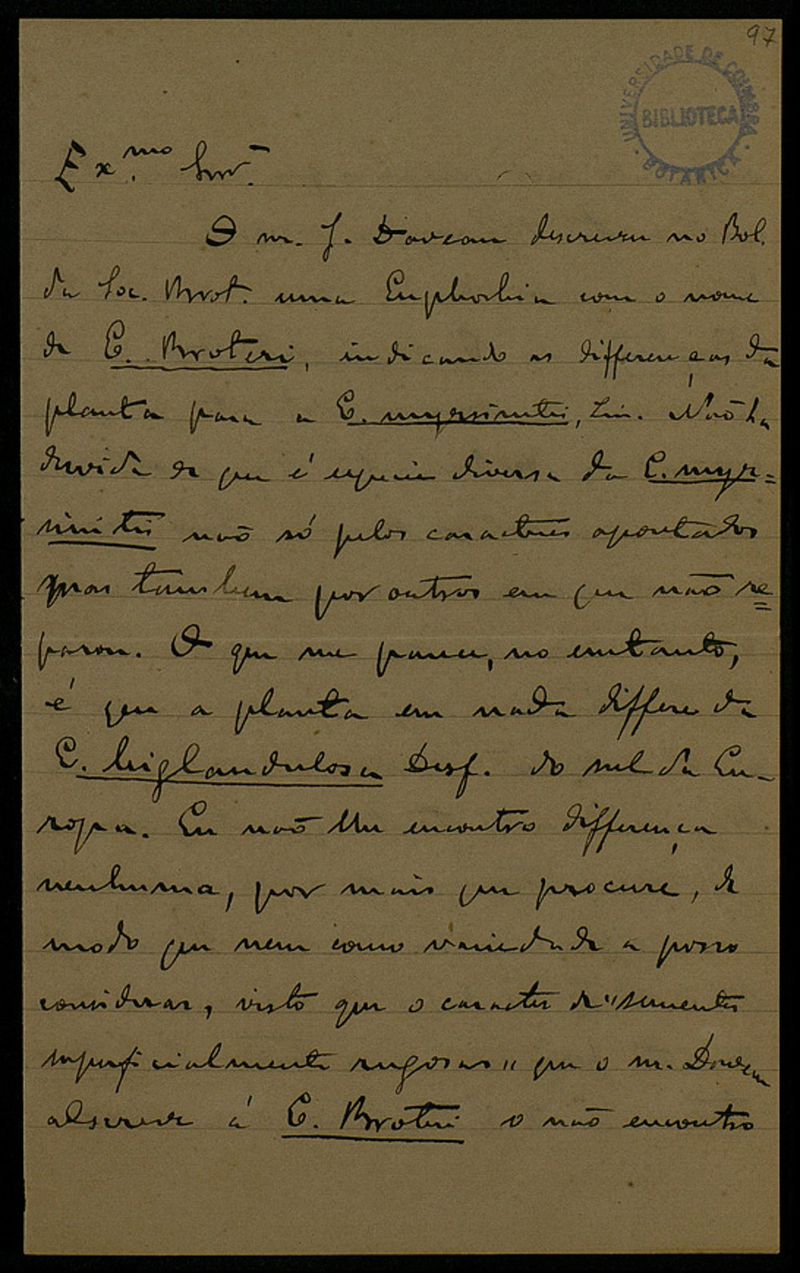 97
UNIVERSIDADE DE COIMBRA
BIBLIOTECA
BOTANICA
Ex.mo Snr.
O sr. J. Daveau descreveu no Bol.
da Soc. Brot. uma Euphorbia com o nome
de E. Broteri, indicando as differenças da
planta para a E. myrsinites, Lin. Não ha
duvida de que é especie diversa da E. myr=
sinites não só pelos caracteres apontados
mas tambem por outros em que não re=
parou. O que me parece, no emtanto,
é que a planta em nada differe da
E. biglandulosa Desf. do sul da Eu-
ropa. Eu não lhe encontro differença
nenhuma, por mais que procure, de
modo que nem como variedade a posso
considerar, visto que o caracter de "sementes
superficialmente rugosas" que o sr. Daveau
à E. Broteri o não encontro